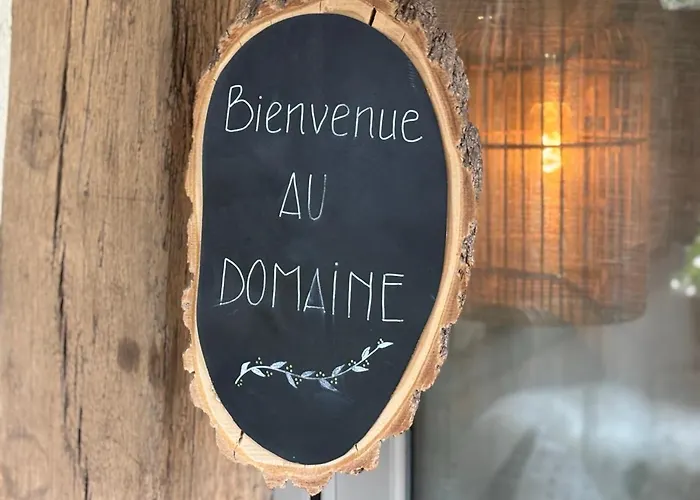 Bienvenue
AU
DOMAINE